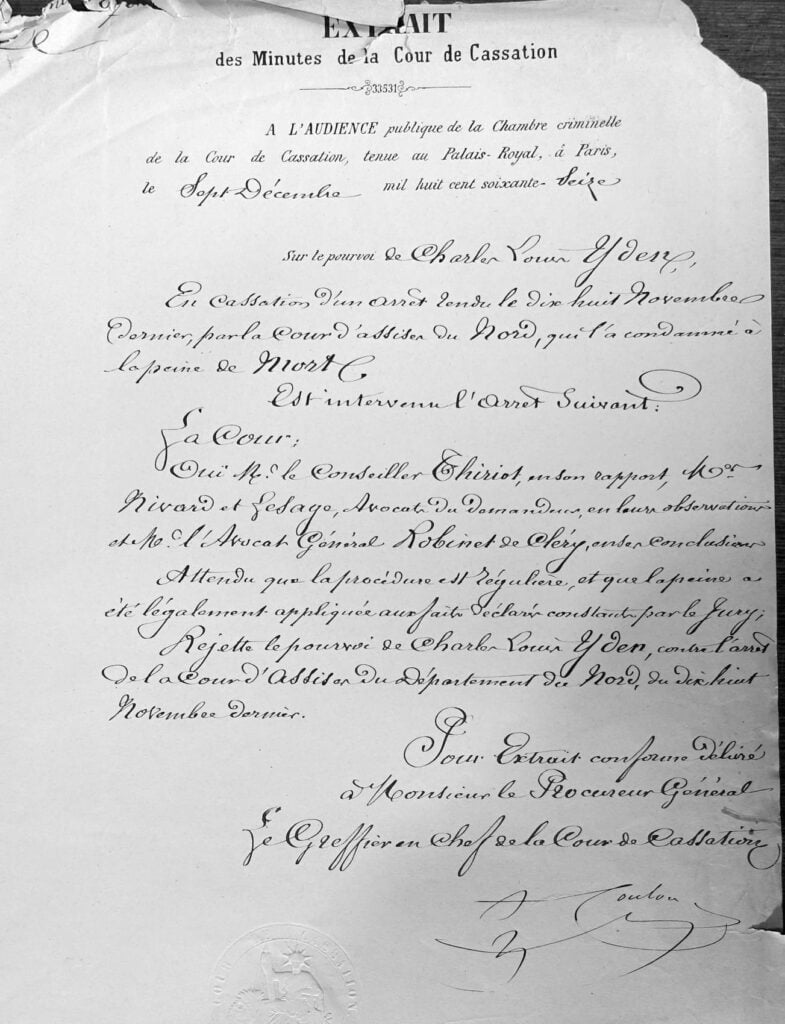 EXTRAIT
des Minutes de la Cour de Cassation
33531
A L'AUDIENCE publique de la Chambre criminelle
de la Cour de Cassation, tenue au Palais-Royal, à Paris,
le Sept Décembre mil huit cent soixante-Seize
Sur le pourvoi de Charles Louis Yden,
En cassation d'un arrêt rendu le dix huit Novembre
dernier, par la Cour d'assises du Nord, qui l'a condamné à
la peine de Mort
Est intervenu l'Arrêt Suivant:
La Cour;
Ouï Mr. le Conseiller Thiriot, en son rapport, Mes
Nivard et Lesage, Avocats du demandeur, en leurs observations
et Mr. l'Avocat Général Robinet de Cléry, en ses conclusions
Attendu que la procédure est régulière, et que la peine a
été légalement appliquée aux faits déclarés constants par le Jury;
Rejette le pourvoi de Charles Louis Yden, contre l'arrêt
de la Cour d'Assises du Département du Nord, du dix huit
Novembre dernier.
Pour Extrait conforme délivré
à Monsieur le Procureur Général
Le Greffier en Chef de la Cour de Cassation
COUR DE CASSATION